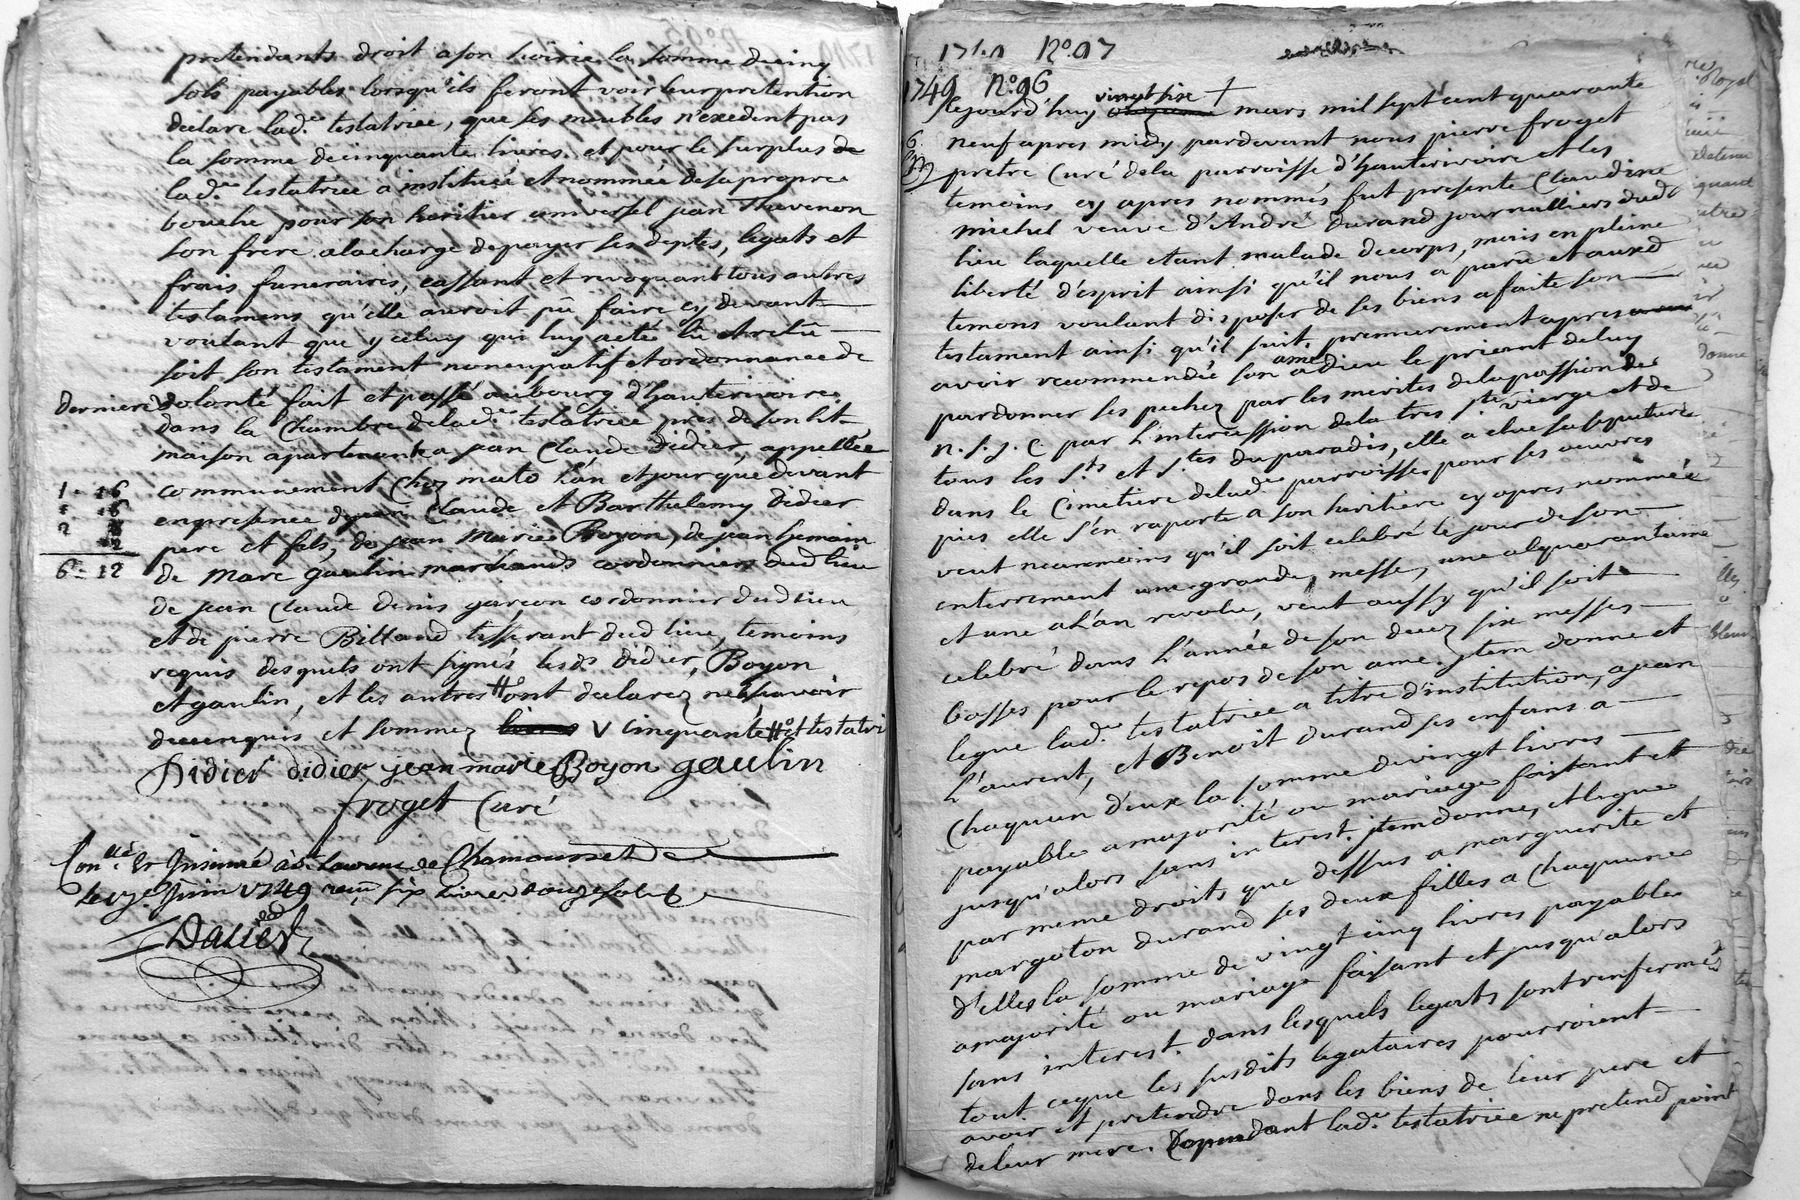 pretendants droit a son hoirie la somme de cinq
sols payables lorsqu'ils feront voir leur pretention
declare lad.e testatrice, que ses meubles n'exedent pas
la somme de cinquante livres. et pour le surplus de
lad.e testatrice a institué et nommée de sa propre
bouche pour son heritier universel jean Thevenon
son frere a la charge de payer ses deptes, legats et
frais funeraires, cassant et revoquant tous autres
testamens qu'elle auroit pû faire cy devant
voulant que yceluy qui luy a eté lû et relu
soit son testament noncupatif et ordonnance de
derniere volonté fait et passé au bourg d'hauterivoire
dans la Chambre de lad.e testatrice près de son lit
maison apartenante a jean Claude Didier, appellée
communement Chez mato L'an et jour que devant
en presence de Claude et Barthelemy Didier
pere et fils, de jean Marie Boyon, de jean
de Marc gaulin marchands cordonniers dud lieu
de jean Claude Denis garcon cordonnier dud lieu
et de pierre Billand tisserant dud lieu, temoins
requis desquels ont signés lesd.s Didier, Boyon
et gaulin, et les autres # ont declarez ne sçavoir
de ce enquis et sommez V cinquante # et testatri
Didier didier jean marie Boyon gaulin
froget Curé
Con.llé et Insinué à S.t Laurent de Chamousset
le Juin 1749 reçu six livres douze sols
1 - 16
6 - 12
1749 N.o 97
1749 N.o 96
vingt sixe +
Cejourd'huy mars mil sept cent quarante
neuf apres midy pardevant nous pierre froget
pretre Curé de la parroisse d'hauterivoire et les
temoins cy apres nommés fut presente Claudine
michel veuve d'André Durand journalliers dud
lieu laquelle etant malade de corps, mais en pleine
liberté d'esprit ainsi qu'il nous a paru et auxd
temons voulant disposer de ses biens a faite son
testament ainsi qu'il suit. premierement apres
avoir recommendée son ame a dieu le priant de luy
pardonner ses pechez par les merites de la passion de
n. s. j. C par l'intercession de la tres s.te vierge et de
tous les s.ts et s.tes du paradis, elle a elue sa sepulture
dans le Cimetiere de lad.e parroisse pour ses oeuvres
pies elle s'en raporte a son heritiere cy apres nommée
veut neanmoins qu'il soit celebré le jour de son
enterrement une grande messe, une a la quarantaine
et une a L'an revolu, veut aussy qu'il soit
celebré dans L'année de son decez six messes
basses pour le repos de son ame. jtem donne et
legue lad.e testatrice a titre d'institution, a jean
L'aurent, et Benoit Durand ses enfans a
Chaquun d'eux la somme de vingt livres
payable a majorité ou mariage faisant et
jusqu'alors sans interest. jtem donne, et legue
par meme droits que dessus a marguerite et
margoton Durand ses deux filles a Chaquune
d'elles la somme de vingt cinq livres payable
a majorité ou mariage faisant et jusqu'alors
sans interest. dans lesquels legats sont renfermés
tout ce que les susdits legataires pourroient
avoir et pretendre dans les biens de leur pere et
de leur mere. Cependant lad.e testatrice ne pretend point